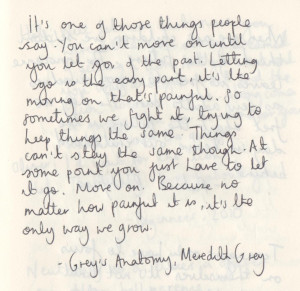 It's one of those things people
say. You can't move on until
you let go of the past. Letting
go is the easy part, it's the
moving on that's painful. So
sometimes we fight it, trying to
keep things the same. Things
can't stay the same though. At
some point you just have to let
it go. Move on. Because no
matter how painful it is, it's the
only way we grow.
- Grey's Anatomy, Meredith Grey